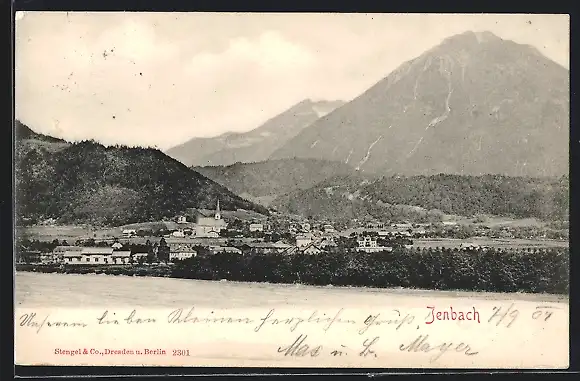 Unserm lieben Kleinen herzlichen Gruß. Jenbach 4/9 04
Max u. b. Mayer
Stengel & Co., Dresden u. Berlin 2301